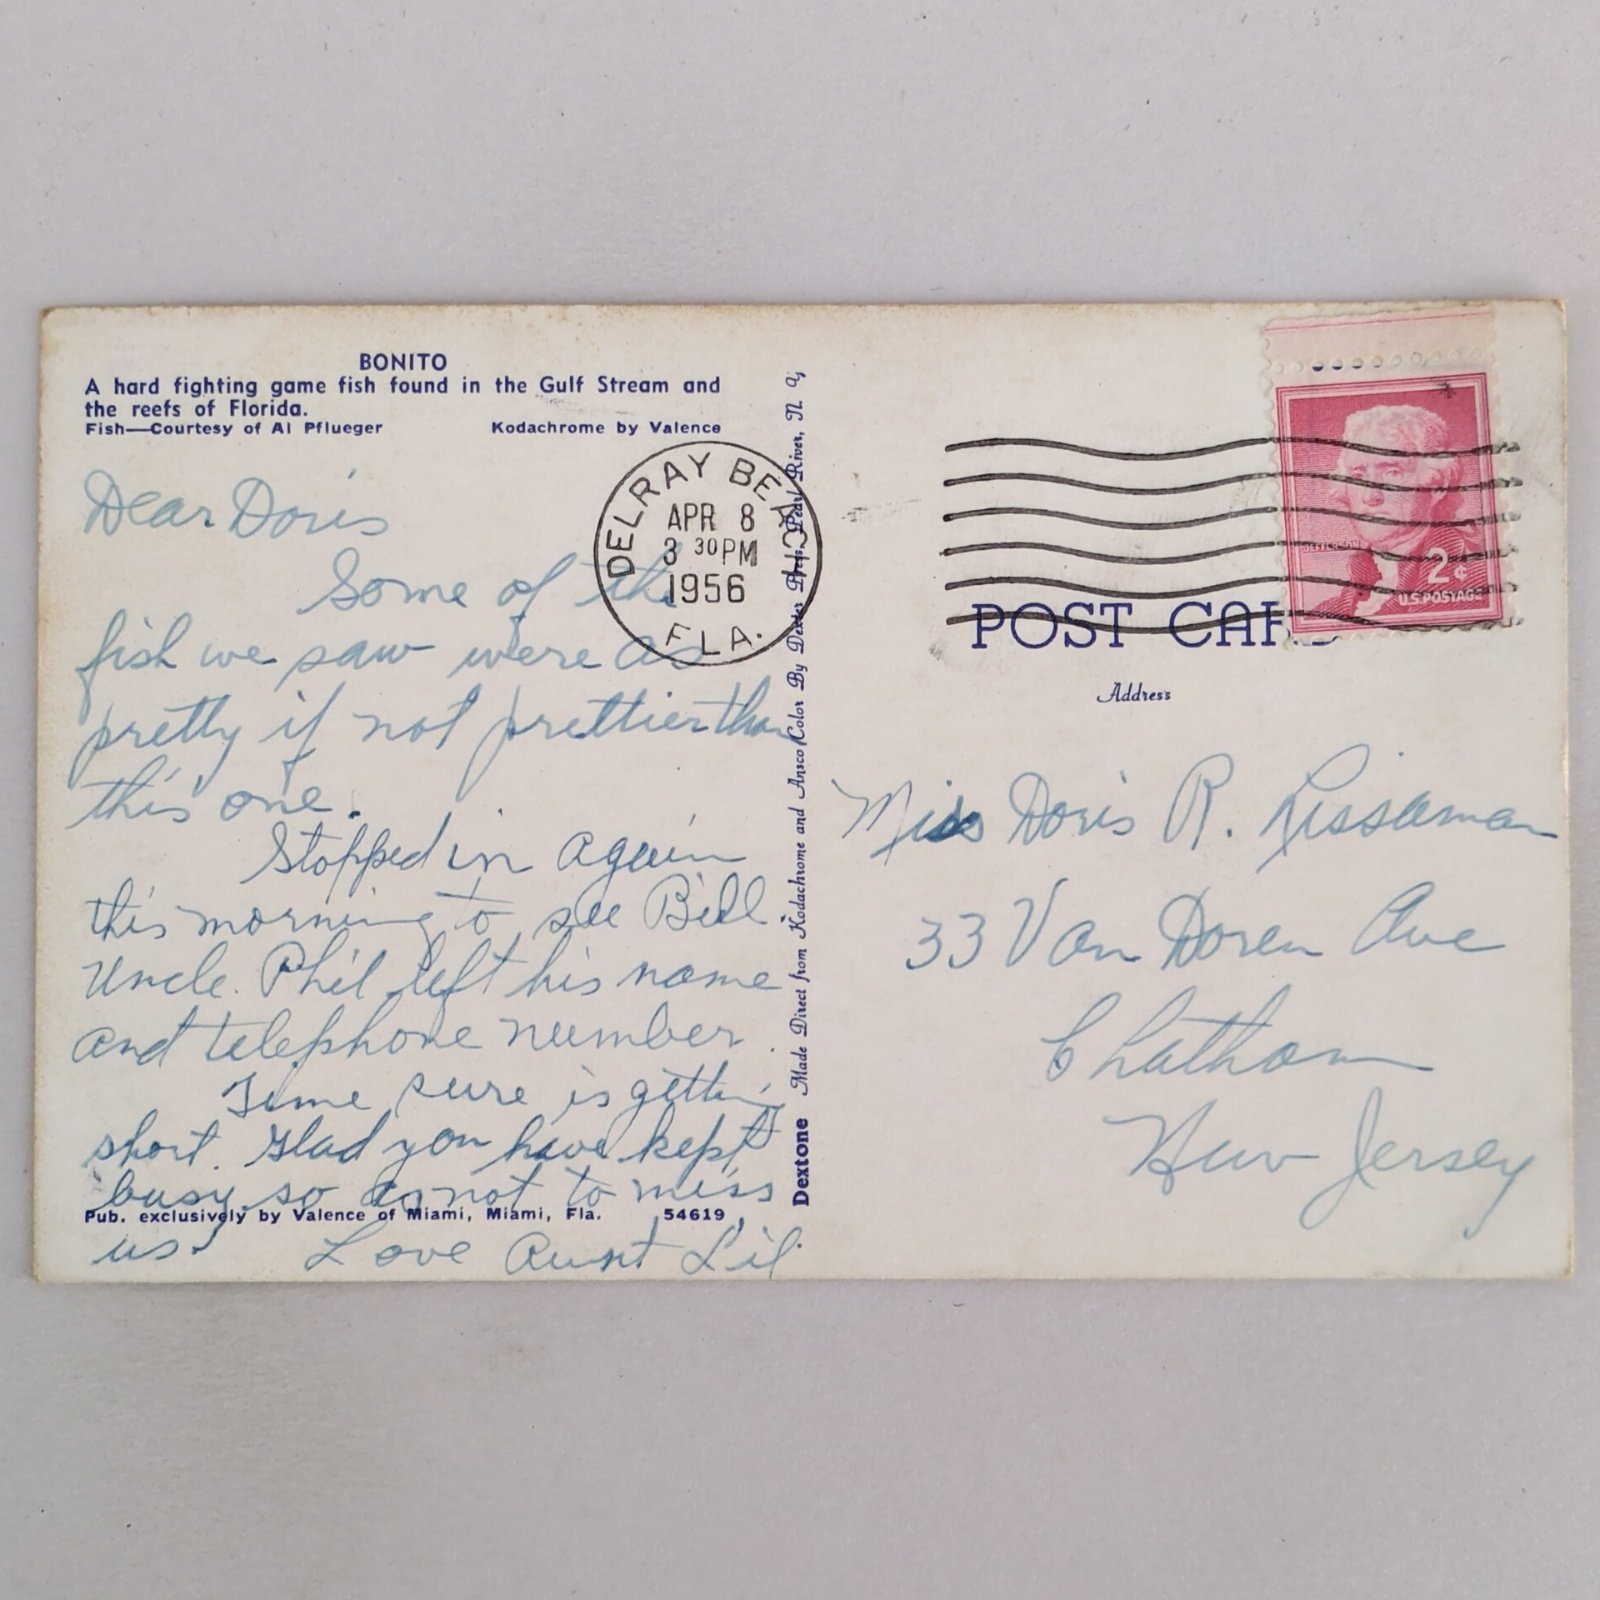 BONITO
A hard fighting game fish found in the Gulf Stream and
the reefs of Florida.
Fish—Courtesy of Al Pflueger Kodachrome by Valence
Dear Doris
Some of the
fish we saw were as
pretty if not prettier than
this one.
Stopped in again
this morning to see Bill
Uncle Phil left his name
and telephone number.
Time sure is getting
short. Glad you have kept
busy so as not to miss
us. Love Aunt Lil.
Pub. exclusively by Valence of Miami, Miami, Fla. 54619
Dextone Made Direct from Kodachrome and Ansco Color By Dexter Press, Pearl River, N. Y.
DELRAY BEACH
APR 8
3 30PM
1956
FLA.
JEFFERSON
2¢
U.S. POSTAGE
POST CARD
Address
Miss Doris R.
33 Van Doren Ave
Chatham
New Jersey